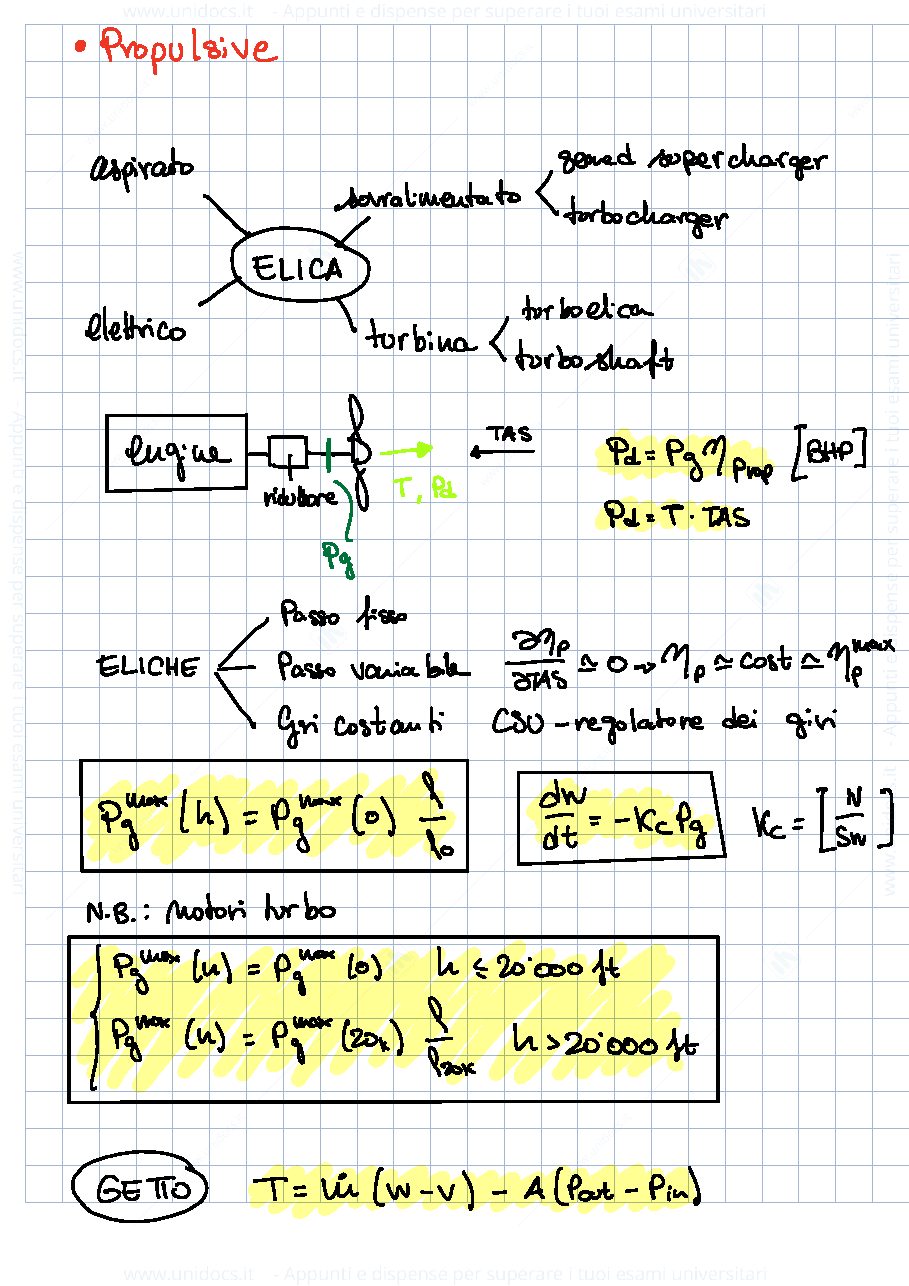 www.unidocs.it - Appunti e dispense per superare i tuoi esami universitari
• Propulsive
aspirato
sovralimentato
geared supercharger
turbocharger
ELICA
elettrico
turbina
turboelica
turboshaft
engine
riduttore
T, Pd
Pg
TAS
Pd = Pg η Prop [BHP]
Pd = T · TAS
ELICHE
Passo fisso
Passo variabile ∂ηp/∂TAS ≃ 0 → ηp ≃ cost ≃ ηp^max
Giri costanti CSU - regolatore dei giri
Pg^max (h) = Pg^max (0) ρ/ρ0
dW/dt = - Kc Pg
Kc = [N/SW]
N.B.: Motori turbo
Pg^max (h) = Pg^max (0) h ≤ 20'000 ft
Pg^max (h) = Pg^max (20k) ρ/ρ20k h > 20'000 ft
GETTO T = ṁ (w - v) - A (Pout - Pin)
www.unidocs.it - Appunti e dispense per superare i tuoi esami universitari